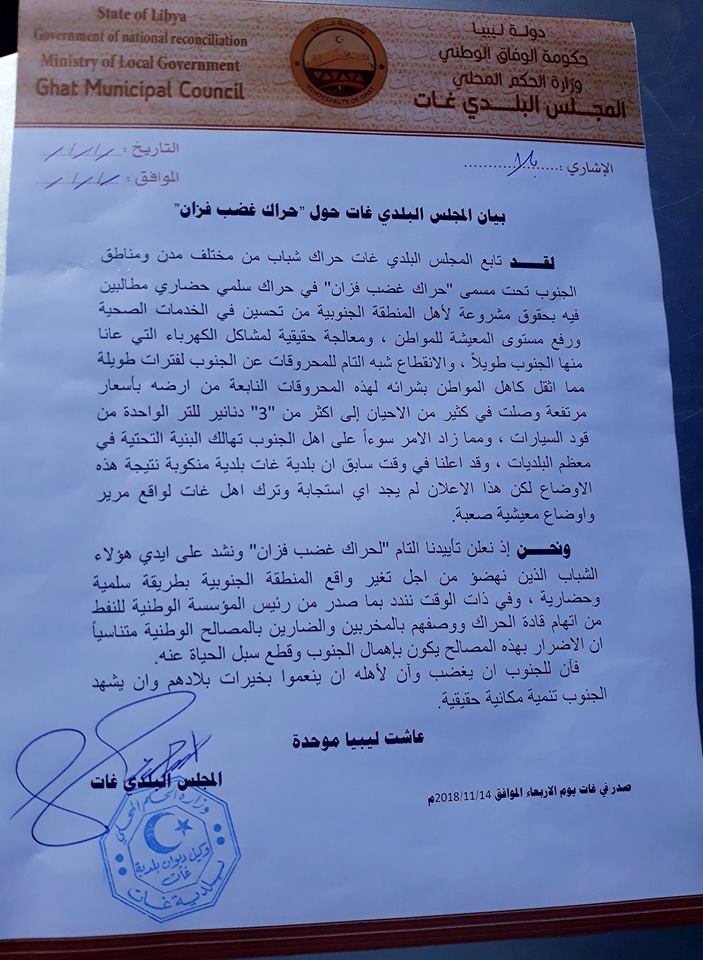 State of Libya
Government of national reconciliation
Ministry of Local Government
Ghat Municipal Council
MUNICIPALTY OF GHAT
دولة ليبيا
حكومة الوفاق الوطني
وزارة الحكم المحلي
المجلس البلدي غات
التاريخ : / / /
الموافق : / / /
الإشاري : بلا
بيان المجلس البلدي غات حول "حراك غضب فزان"
لقــد تابع المجلس البلدي غات حراك شباب من مختلف مدن ومناطق
الجنوب تحت مسمى "حراك غضب فزان" في حراك سلمي حضاري مطالبين
فيه بحقوق مشروعة لأهل المنطقة الجنوبية من تحسين في الخدمات الصحية
ورفع مستوى المعيشة للمواطن ، ومعالجة حقيقية لمشاكل الكهرباء التي عانا
منها الجنوب طويلاً ، والانقطاع شبه التام للمحروقات عن الجنوب لفترات طويلة
مما اثقل كاهل المواطن بشرائه لهذه المحروقات النابعة من ارضه بأسعار
مرتفعة وصلت في كثير من الاحيان إلى اكثر من "3" دنانير للتر الواحدة من
قود السيارات ، ومما زاد الامر سوءاً على اهل الجنوب تهالك البنية التحتية في
معظم البلديات ، وقد اعلنا في وقت سابق ان بلدية غات بلدية منكوبة نتيجة هذه
الاوضاع لكن هذا الاعلان لم يجد اي استجابة وترك اهل غات لواقع مرير
واوضاع معيشية صعبة.
ونحــن إذ نعلن تأييدنا التام "لحراك غضب فزان" ونشد على ايدي هؤلاء
الشباب الذين نهضؤ من اجل تغير واقع المنطقة الجنوبية بطريقة سلمية
وحضارية ، وفي ذات الوقت نندد بما صدر من رئيس المؤسسة الوطنية للنفط
من اتهام قادة الحراك ووصفهم بالمخربين والضارين بالمصالح الوطنية متناسياً
ان الاضرار بهذه المصالح يكون بإهمال الجنوب وقطع سبل الحياة عنه.
فآن للجنوب ان يغضب وآن لأهله ان ينعموا بخيرات بلادهم وان يشهد
الجنوب تنمية مكانية حقيقية.
عاشت ليبيا موحدة
المجلس البلدي غات
صدر في غات يوم الاربعاء الموافق 2018/11/14م
وزارة الحكم المحلي
وكيل ديوان بلدية
غات
بلدية غات